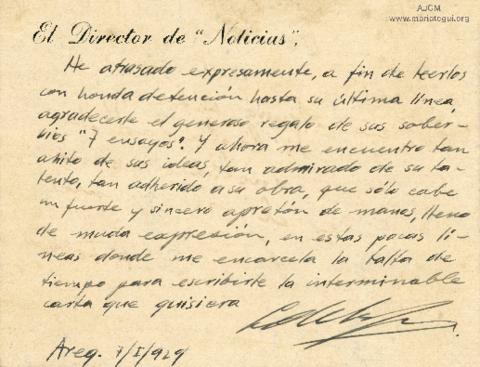 AJCM
www.mariategui.org
El Director de "Noticias",
He atrasado expresamente, a fin de leerlos
con honda detención hasta su última línea,
agradecerle el generoso regalo de sus sober-
bios "7 ensayos". Y ahora me encuentro tan
ahito de sus ideas, tan admirado de su ta-
lento, tan adherido a su obra, que sólo cabe
un fuerte y sincero apretón de manos, lleno
de muda expresión, en estas pocas lí-
neas donde me encarcela la falta de
tiempo para escribirle la interminable
carta que quisiera
Areq. 7/I/929